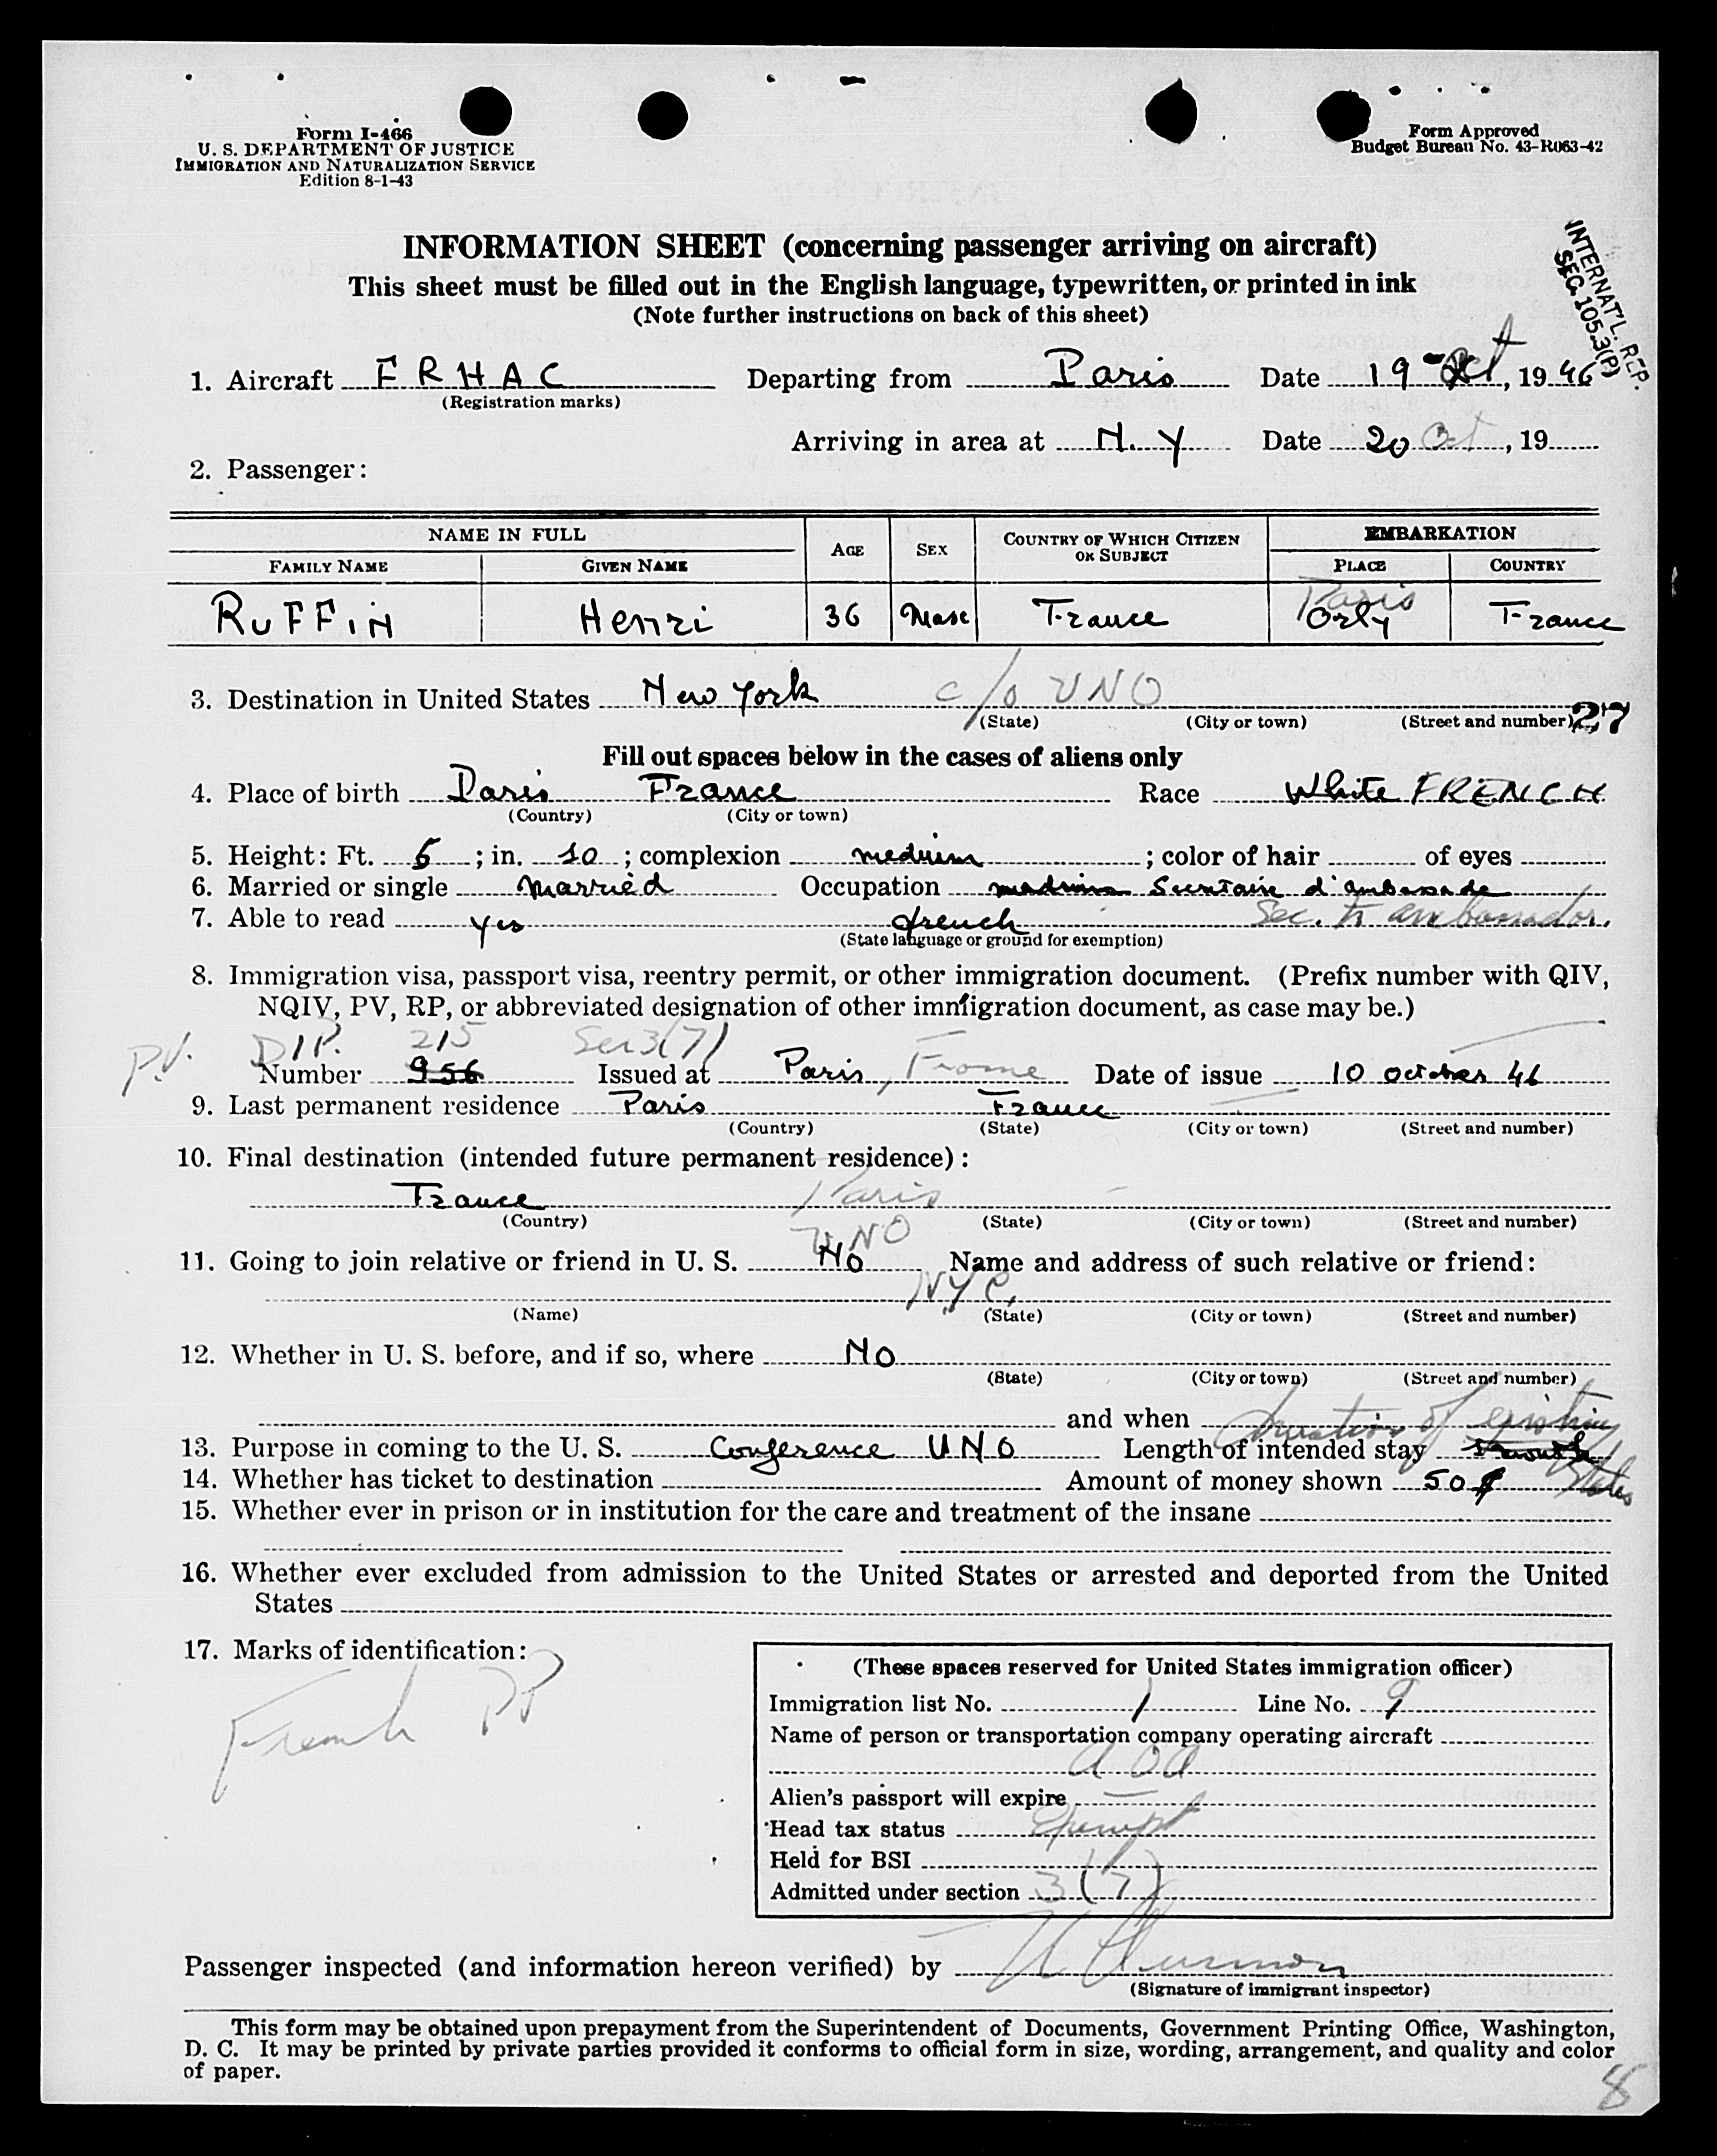 Form I-466
U. S. DEPARTMENT OF JUSTICE
IMMIGRATION AND NATURALIZATION SERVICE
Edition 8-1-43
Form Approved
Budget Bureau No. 43-R063-42
INTERNAT'L. REP.
SEC. 105.3(P)
INFORMATION SHEET (concerning passenger arriving on aircraft)
This sheet must be filled out in the English language, typewritten, or printed in ink
(Note further instructions on back of this sheet)
1. Aircraft FRHAC Departing from Paris Date 19 Oct, 1946
(Registration marks)
Arriving in area at N.Y Date 20 Oct, 19
2. Passenger:
NAME IN FULL AGE SEX COUNTRY OF WHICH CITIZEN OR SUBJECT EMBARKATION
FAMILY NAME GIVEN NAME PLACE COUNTRY
Paris
RUFFIN Henri 36 Masc France Orly France
3. Destination in United States New York c/o UNO
(State) (City or town) (Street and number) 27
Fill out spaces below in the cases of aliens only
4. Place of birth Paris France Race White FRENCH
(Country) (City or town)
5. Height: Ft. 5; in. 10; complexion medium; color of hair of eyes
6. Married or single married Occupation Secretaire d'ambassade
7. Able to read yes french Sec. to ambassador.
(State language or ground for exemption)
8. Immigration visa, passport visa, reentry permit, or other immigration document. (Prefix number with QIV,
NQIV, PV, RP, or abbreviated designation of other immigration document, as case may be.)
P.V. DIP. 215 Sec 3(7)
Number 956 Issued at Paris, France Date of issue 10 october 46
9. Last permanent residence Paris France
(Country) (State) (City or town) (Street and number)
10. Final destination (intended future permanent residence):
France Paris
(Country) (State) (City or town) (Street and number)
UNO
11. Going to join relative or friend in U. S. No Name and address of such relative or friend:
NYC,
(Name) (State) (City or town) (Street and number)
12. Whether in U. S. before, and if so, where No
(State) (City or town) (Street and number)
and when
duration of existing
13. Purpose in coming to the U. S. Conference UNO Length of intended stay
status
14. Whether has ticket to destination Amount of money shown 50 $
15. Whether ever in prison or in institution for the care and treatment of the insane
16. Whether ever excluded from admission to the United States or arrested and deported from the United
States
17. Marks of identification:
French PP
(These spaces reserved for United States immigration officer)
Immigration list No. 1 Line No. 9
Name of person or transportation company operating aircraft
AOA
Alien's passport will expire
Head tax status Exempt
Held for BSI
Admitted under section 3(7)
Passenger inspected (and information hereon verified) by
(Signature of immigrant inspector)
This form may be obtained upon prepayment from the Superintendent of Documents, Government Printing Office, Washington,
D. C. It may be printed by private parties provided it conforms to official form in size, wording, arrangement, and quality and color
of paper.
8